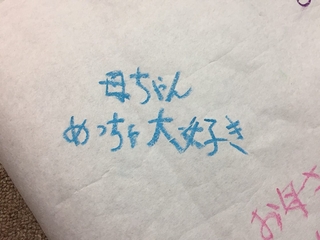 母ちゃん
めっちゃ大好き
お母さ